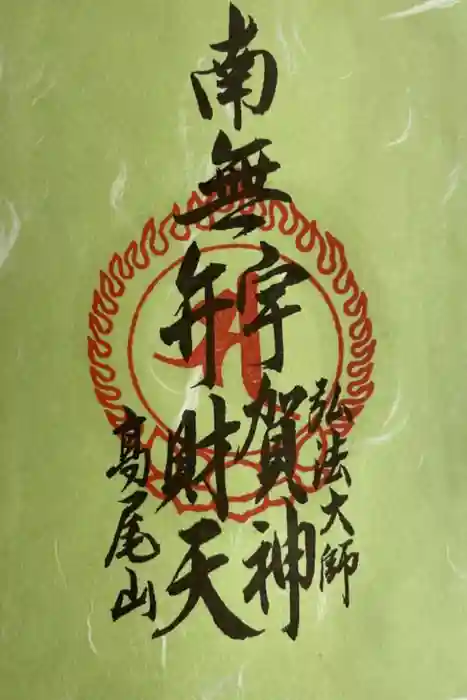 弘法大師
南無
宇賀神
弁財天
髙尾山